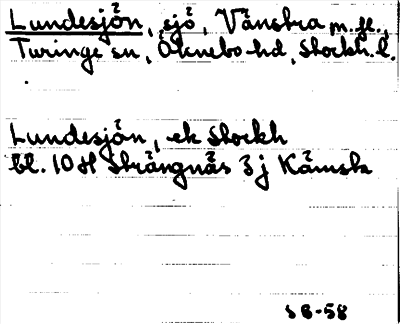 Lundesjön, sjö, Vänsbra m.fl.,
Turinge sn, Öknebo hd, Stockh. l.
Lundesjön, ek Stockh
bl. 10H Strängnäs 3j Kämsta
SB-58